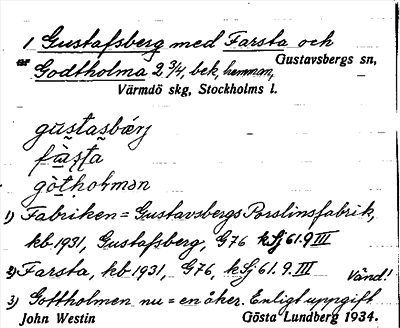 1 Gustafsberg med Farsta och
Godtholma 2 3/4, bek. hemman,
Gustavsbergs sn,
Värmdö skg, Stockholms l.
gu̯stasbærj
fɑ̀ṣṭa
gòthoḷmən
1) Fabriken = Gustavsbergs Porslinsfabrik,
kb 1931, Gustafsberg, G76 kSj 61.9.III
2) Farsta, kb 1931, G76, kSj 61.9.III
Vänd!
3) Gottholmen nu = en åker. Enligt uppgift
John Westin
Gösta Lundberg 1934.